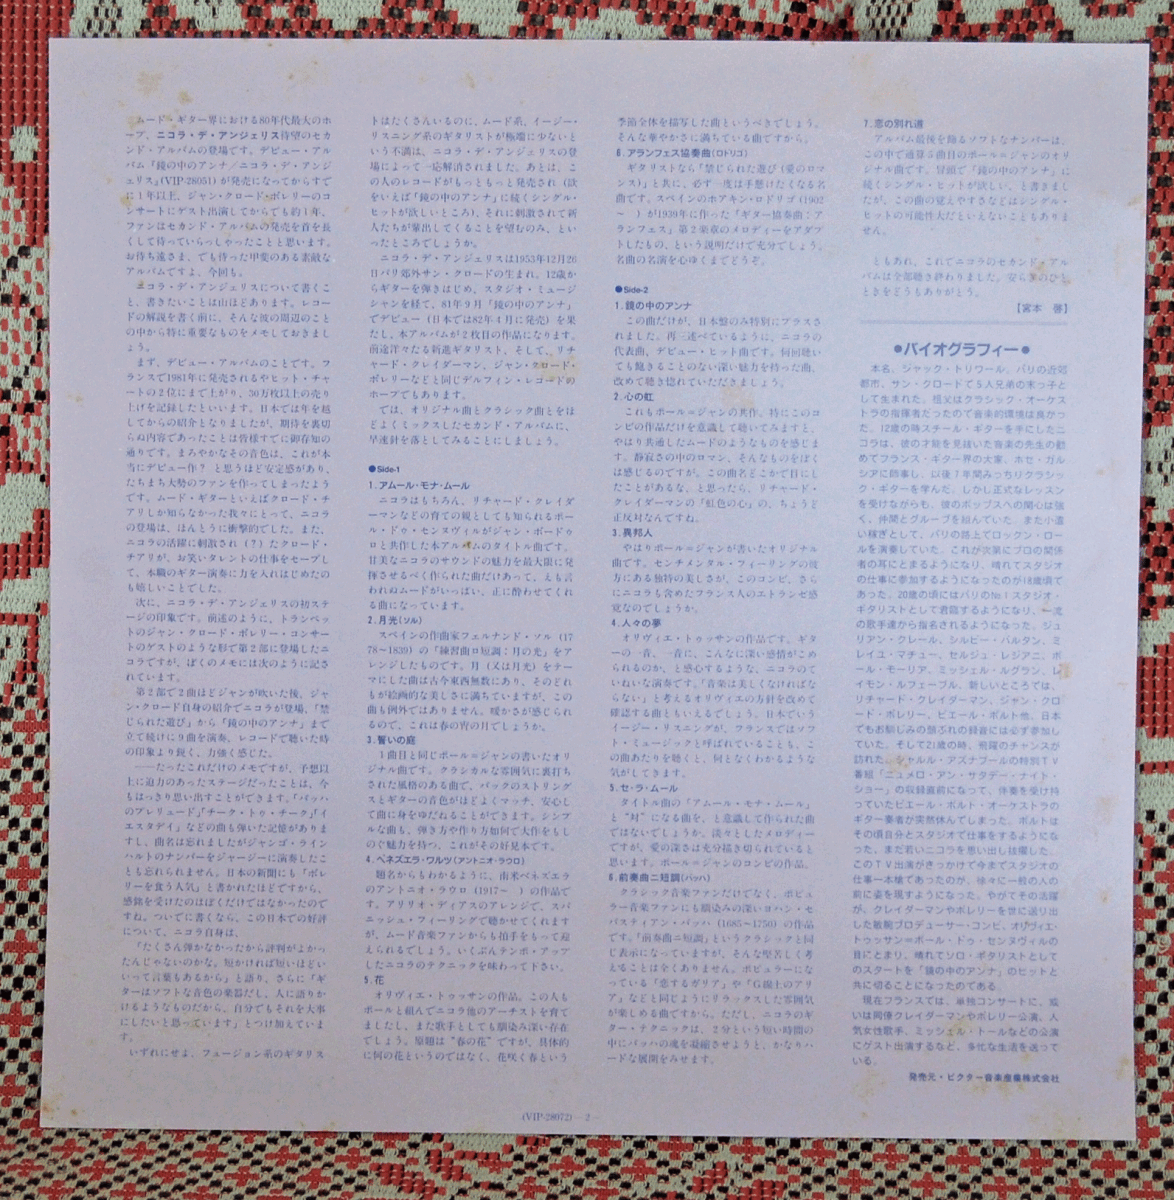 ムード・ギター界における80年代最大のホ
ープ、ニコラ・デ・アンジェリス待望のセカ
ンド・アルバムの登場です。デビュー・アル
バム「鏡の中のアンナ／ニコラ・デ・アンジ
ェリス」(VIP-28051)が発売になってからすで
に1年以上、ジャン・クロード・ボレリーのコ
ンサートにゲスト出演してからでも約1年、
ファンはセカンド・アルバムの発売を首を長
くして待っていらっしゃったことと思います。
お待ち遠さま、でも待った甲斐のある素敵な
アルバムですよ、今回も。
ニコラ・デ・アンジェリスについて書くこ
と、書きたいことは山ほどあります。レコー
ドの解説を書く前に、そんな彼の周辺のこと
の中から特に重要なものをメモしておきまし
ょう。
まず、デビュー・アルバムのことです。フ
ランスで1981年に発売されるやヒット・チャ
ートの2位にまで上がり、30万枚以上の売り
上げを記録したといいます。日本では年を越
してからの紹介となりましたが、期待を裏切
らぬ内容であったことは皆様すでに御存知の
通りです。まろやかなその音色は、これが本
当にデビュー作？と思うほど安定感があり、
たちまち大勢のファンを作ってしまったよう
です。ムード・ギターといえばクロード・チ
アリしか知らなかった我々にとって、ニコラ
の登場は、ほんとうに衝撃的でした。また、
ニコラの活躍に刺激され（？）たクロード・
チアリが、お笑いタレントの仕事をセーブし
て、本職のギター演奏に力を入れはじめたの
も嬉しいことでした。
次に、ニコラ・デ・アンジェリスの初ステ
ージの印象です。前述のように、トランペッ
トのジャン・クロード・ボレリー・コンサー
トのゲストのような形で第2部に登場したニ
コラですが、ぼくのメモには次のように記さ
れています。
第2部で2曲ほどジャンが吹いた後、ジャ
ン・クロード自身の紹介でニコラが登場、「禁
じられた遊び」から「鏡の中のアンナ」まで
立て続けに9曲を演奏。レコードで聴いた時
の印象より鋭く、力強く感じた。
――たったこれだけのメモですが、予想以
上に迫力のあったステージだったことは、今
もはっきり思い出すことができます。「バッハ
のプレリュード」「チーク・トゥ・チーク」「イ
エスタデイ」などの曲も弾いた記憶がありま
すし、曲名は忘れましたがジャンゴ・ライン
ハルトのナンバーをジャージーに演奏したこ
とも忘れられません。日本の新聞にも「ボレ
リーを食う人気」と書かれたほどですから、
感銘を受けたのはぼくだけではなかったので
すね。ついでに書くなら、この日本での好評
について、ニコラ自身は、
「たくさん弾かなかったから評判がよかっ
たんじゃないのかな。短かければ短いほどい
いって言葉もあるから」と語り、さらに「ギ
ターはソフトな音色の楽器だし、人に語りか
けるようなものだから、自分でもそれを大事
にしたいと思っています」とつけ加えていま
す。
いずれにせよ、フュージョン系のギタリス
トはたくさんいるのに、ムード系、イージー・
リスニング系のギタリストが極端に少ないと
いう不満は、ニコラ・デ・アンジェリスの登
場によって一応解消されました。あとは、こ
の人のレコードがもっともっと発売され（欲
をいえば「鏡の中のアンナ」に続くシングル・
ヒットが欲しいところ）、それに刺激されて新
人たちが輩出してくることを望むのみ、とい
ったところでしょうか。
ニコラ・デ・アンジェリスは1953年12月26
日パリ郊外サン・クロードの生まれ。12歳か
らギターを弾きはじめ、スタジオ・ミュージ
シャンを経て、81年9月「鏡の中のアンナ」
でデビュー（日本では82年4月に発売）を果
たし、本アルバムが2枚目の作品になります。
前途洋々たる新進ギタリスト、そして、リチ
ャード・クレイダーマン、ジャン・クロード・
ボレリーなどと同じデルフィン・レコードの
ホープでもあります。
では、オリジナル曲とクラシック曲とをほ
どよくミックスしたセカンド・アルバムに、
早速針を落としてみることにしましょう。
●Side-1
1.アムール・モナ・ムール
ニコラはもちろん、リチャード・クレイダ
ーマンなどの育ての親としても知られるポー
ル・ドゥ・センヌヴィルがジャン・ボードゥ
ロと共作した本アルバムのタイトル曲です。
甘美なニコラのサウンドの魅力を最大限に発
揮させるべく作られた曲だけあって、えも言
われぬムードがいっぱい。正に酔わせてくれ
る曲になっています。
2.月光(ソル)
スペインの作曲家フェルナンド・ソル（17
78～1839）の「練習曲ロ短調：月の光」をア
レンジしたものです。月（又は月光）をテー
マにした曲は古今東西無数にあり、そのどれ
もが絵画的な美しさに満ちていますが、この
曲も例外ではありません。暖かさが感じられ
るので、これは春の宵の月でしょうか。
3.誓いの庭
1曲目と同じポール＝ジャンの書いたオリ
ジナル曲です。クラシカルな雰囲気に裏打ち
された風格のある曲で、バックのストリング
スとギターの音色がほどよくマッチ、安心し
て曲に身をゆだねることができます。シンプ
ルな曲も、弾き方や作り方如何で大作をもし
のぐ魅力を持つ、これがその好見本です。
4.ベネズエラ・ワルツ(アントニオ・ラウロ)
題名からもわかるように、南米ベネズエラ
のアントニオ・ラウロ（1917～　）の作品で
す。アリリオ・ディアスのアレンジで、スパ
ニッシュ・フィーリングで聴かせてくれます
が、ムード音楽ファンからも拍手をもって迎
えられるでしょう。いくぶんテンポ・アップ
したニコラのテクニックを味わって下さい。
5.花
オリヴィエ・トゥッサンの作品。この人も
ポールと組んでニコラ他のアーチストを育て
ましたし、また歌手としても馴染み深い存在
でしょう。原題は“春の花”ですが、具体的
に何の花というのではなく、花咲く春という
季節全体を描写した曲というべきでしょう。
そんな華やかさに満ちている曲ですから。
6.アランフェス協奏曲(ロドリゴ)
ギタリストなら「禁じられた遊び（愛のロマ
ンス）」と共に、必ず一度は手懸けたくなる名
曲です。スペインのホアキン・ロドリゴ（1902
～　）が1939年に作った「ギター協奏曲：ア
ランフェス」第2楽章のメロディーをアダプ
トしたもの、という説明だけで充分でしょう。
名曲の名演を心ゆくまでどうぞ。
●Side-2
1.鏡の中のアンナ
この曲だけが、日本盤のみ特別にプラスさ
れました。再三述べているように、ニコラの
代表曲、デビュー・ヒット曲です。何回聴い
ても飽きることのない深い魅力を持った曲。
改めて聴き惚れていただきましょう。
2.心の虹
これもポール＝ジャンの共作。特にこのコ
ンビの作品だけを意識して聴いてみますと、
やはり共通したムードのようなものを感じま
す。静寂さの中のロマン、そんなものをぼく
は感じるのですが。この曲名どこかで目にし
たことがあるな、と思ったら、リチャード・
クレイダーマンの「虹色の心」の、ちょうど
正反対なんですね。
3.異邦人
やはりポール＝ジャンが書いたオリジナル
曲です。センチメンタル・フィーリングの彼
方にある独特の美しさが、このコンビ、さら
にニコラも含めたフランス人のエトランゼ感
覚なのでしょうか。
4.人々の夢
オリヴィエ・トゥッサンの作品です。ギタ
ーの一音、一音に、こんなに深い感情がこめ
られるのか、と感心するような、ニコラのて
いねいな演奏です。「音楽は美しくなければな
らない」と考えるオリヴィエの方針を改めて
確認する曲ともいえるでしょう。日本でいう
イージー・リスニングが、フランスではソフ
ト・ミュージックと呼ばれていることも、こ
の曲あたりを聴くと、何となくわかるような
気がしてきます。
5.セ・ラ・ムール
タイトル曲の「アムール・モナ・ムール」
と“対”になる曲を、と意識して作られた曲
ではないでしょうか。淡々としたメロディー
ですが、愛の深さは充分描き切られていると
思います。ポール＝ジャンのコンビの作品。
6.前奏曲ニ短調(バッハ)
クラシック音楽ファンだけでなく、ポピュ
ラー音楽ファンにも馴染みの深いヨハン・セ
バスティアン・バッハ（1685～1750）の作品
です。「前奏曲ニ短調」というクラシックと同
じ表示になっていますが、そんな堅苦しく考
えることは全くありません。ポピュラーにな
っている「恋するガリア」や「G線上のアリ
ア」などと同じようにリラックスした雰囲気
が楽しめる曲ですから。ただし、ニコラのギ
ター・テクニックは、2分という短い時間の
中にバッハの魂を凝縮させようと、かなりハ
ードな展開をみせます。
7.恋の別れ道
アルバム最後を飾るソフトなナンバーは、
この中で通算5曲目のポール＝ジャンのオリ
ジナル曲です。冒頭で「鏡の中のアンナ」に
続くシングル・ヒットが欲しい、と書きまし
たが、この曲の覚えやすさなどはシングル・
ヒットの可能性大だといえないこともありま
せん。
ともあれ、これでニコラのセカンド・アル
バムは全部聴き終わりました。安らぎのひと
ときをどうもありがとう。
【宮本　啓】
●バイオグラフィー●
本名、ジャック・トリワール。パリの近郊
都市、サン・クロードで5人兄弟の末っ子と
して生まれた。祖父はクラシック・オーケス
トラの指揮者だったので音楽的環境は良かっ
た。12歳の時スチール・ギターを手にしたニ
コラは、彼の才能を見抜いた音楽の先生の勧
めでフランス・ギター界の大家、ホセ・ガル
シアに師事し、以後7年間みっちりクラシッ
ク・ギターを学んだ。しかし正式なレッスン
を受けながらも、彼のポップスへの関心は強
く、仲間とグループを組んでいた。また小遣
い稼ぎとして、パリの路上でロックン・ロー
ルを演奏していた。これが次第にプロの関係
者の耳にとまるようになり、晴れてスタジオ
の仕事に参加するようになったのが18歳頃で
あった。20歳の頃にはパリのNo.1スタジオ・
ギタリストとして君臨するようになり、一流
の歌手達から指名されるようになった。ジュ
リアン・クレール、シルビー・バルタン、ミ
レイユ・マチュー、セルジュ・レジアニ、ポ
ール・モーリア、ミッシェル・ルグラン、レ
イモン・ルフェーブル、新しいところでは、
リチャード・クレイダーマン、ジャン・クロ
ード・ボレリー、ピエール・ポルト他、日本
でもお馴じみの顔ぶれの録音には必ず参加し
ていた。そして21歳の時、飛躍のチャンスが
訪れた。シャルル・アズナブールの特別TV
番組「ニュメロ・アン・サタデー・ナイト・
ショー」の収録直前になって、伴奏を受け持
っていたピエール・ポルト・オーケストラの
ギター奏者が突然休んでしまった。ポルトは
その頃自分とスタジオで仕事をするようにな
った、まだ若いニコラを思い出し抜擢した。
このTV出演がきっかけで今までスタジオの
仕事一本槍であったのが、徐々に一般の人の
前に姿を現すようになった。やがてその活躍
が、クレイダーマンやボレリーを世に送り出
した敏腕プロデューサー・コンビ、オリヴィエ・
トゥッサン＝ポール・ドゥ・センヌヴィルの
目にとまり、晴れてソロ・ギタリストとして
のスタートを「鏡の中のアンナ」のヒットと
共に切ることになったのである。
現在フランスでは、単独コンサートに、或
いは同僚クレイダーマンやボレリー公演、人
気女性歌手、ミッシェル・トールなどの公演
にゲスト出演するなど、多忙な生活を送って
いる。
発売元・ビクター音楽産業株式会社
(VIP-28072)－2－